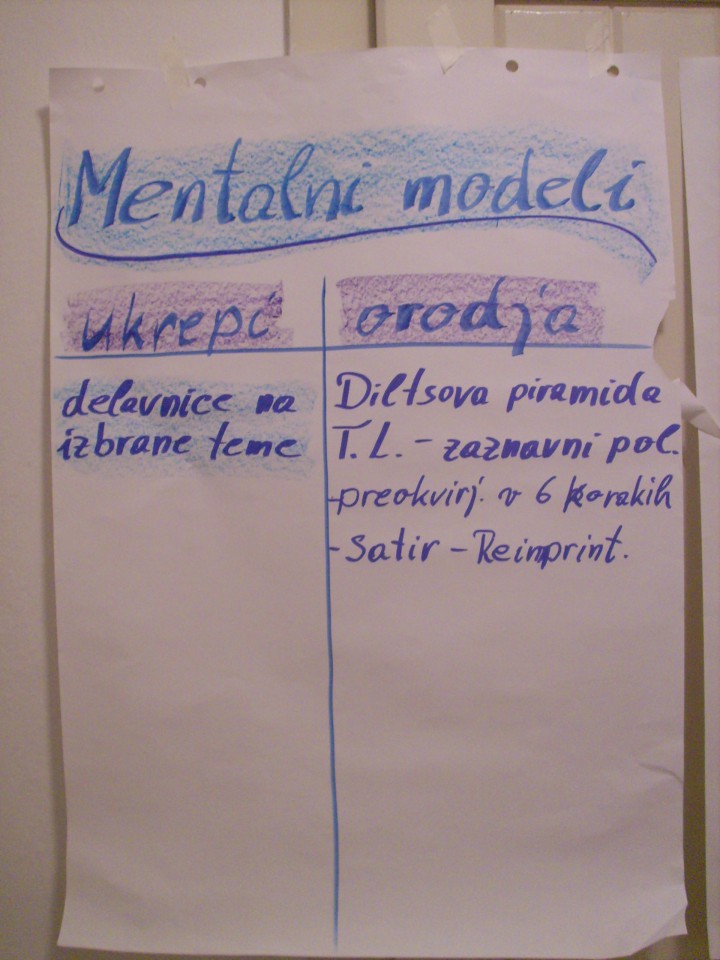 Mentalni modeli
ukrepi
orodja
delavnice na
izbrane teme
Diltsova piramida
T.L. - zaznavni pol.
-preokvirj. v 6 korakih
- Satir - Reimprint.